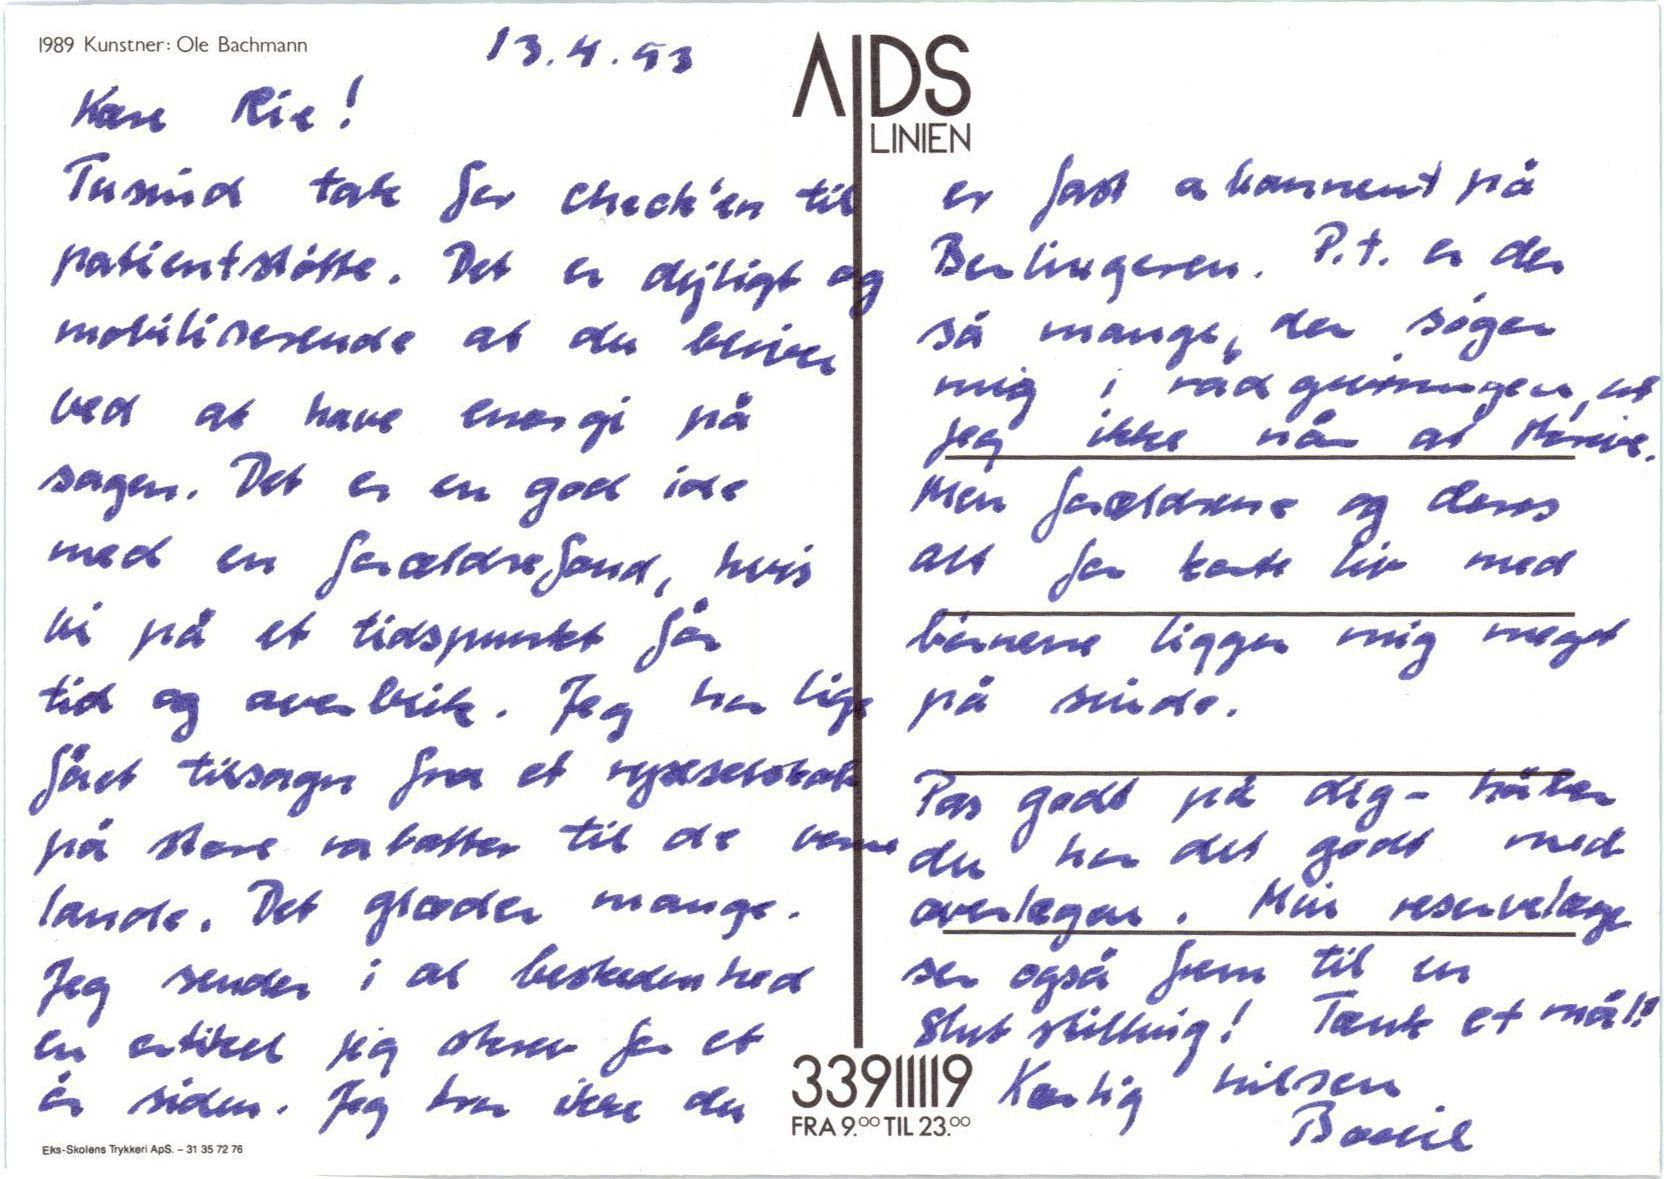 1989 Kunstner: Ole Bachmann
13.4.93
Kære Rie!
Tusind tak for check'en til
patientstøtte. Det er dejligt og
mobiliserende at du bliver
ved at have energi på
sagen. Det er en god ide
med en forældrefond, hvis
vi på et tidspunkt får
tid og overblik. Jeg har lige
fået tilsagn fra et rejseselskab
på store rabatter til de varme
lande. Det glæder mange.
Jeg sender i al beskedenhed
en artikel jeg skrev for et
år siden. Jeg tror ikke du
Eks-Skolens Trykkeri ApS. – 31 35 72 76
AIDS
LINIEN
er fast abonnent på
Berlingeren. P.t. er der
så mange, der søger
mig i rådgivningen, at
jeg ikke når at skrive.
Men forældrene og deres
alt for korte liv med
børnene ligger mig meget
på sinde.
Pas godt på dig – håber
du har det godt med
overlægen. Min reservelæge
ser også frem til en
slutstilling! Tænk et mål!!
Kærlig hilsen
Bodil
33911119
FRA 9.00 TIL 23.00